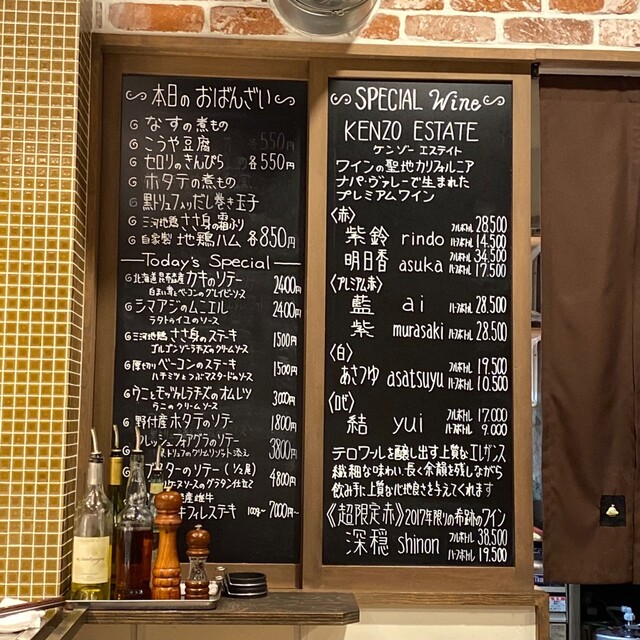 本日の おばんざい
なすの煮もの
こうや豆腐
セロリのきんぴら 各550円
ホタテの煮もの
黒トリュフ入りだし巻き玉子
三河地鶏 ささ身の霜ふり
自家製 地鶏ハム 各850円
Today's Special
北海道昆布森産カキのソテー 2400円
白まい茸とベーコンのグレイビーソース
シマアジのムニエル 2400円
ラタトゥイユのソース
三河地鶏 ささ身のステキ 1500円
ゴルゴンゾーラチーズのクリームソース
厚切りベーコンのステキ 1500円
ハチミツとつぶマスタードのソース
ウニとモッツァレラチーズのオムレツ 3000円
ウニのクリームソース
野付産ホタテのソテー 1800円
フレッシュフォアグラのソテー 3800円
トリュフのクリームリゾット添え
ブスターのソテー(1/2尾) 4800円
ソースのグラタン仕立て
産雌牛
キフィレステキ 100g〜 7000円〜
SPECIAL Wine
KENZO ESTATE
ケンゾー エステイト
ワインの聖地カリフォルニア
ナパ・ヴァレーで生まれた
プレミアムワイン
〈赤〉
紫鈴 rindo フルボトル 28.500 ハーフボトル 14.500
明日香 asuka フルボトル 34.500 ハーフボトル 17.500
〈プレミアム赤〉
藍 ai ハーフボトル 28.500
紫 murasaki ハーフボトル 28.500
〈白〉
あさつゆ asatsuyu フルボトル 19.500 ハーフボトル 10.500
〈ロゼ〉
結 yui フルボトル 17.000 ハーフボトル 9.000
テロワールを醸し出す上質なエレガンス
繊細な味わい、長く余韻を残しながら
飲み手に上質な心地良さを与えてくれます
《超限定赤》2017年限りの希跡のワイン
深穏 shinon フルボトル 38.500 ハーフボトル 19.500